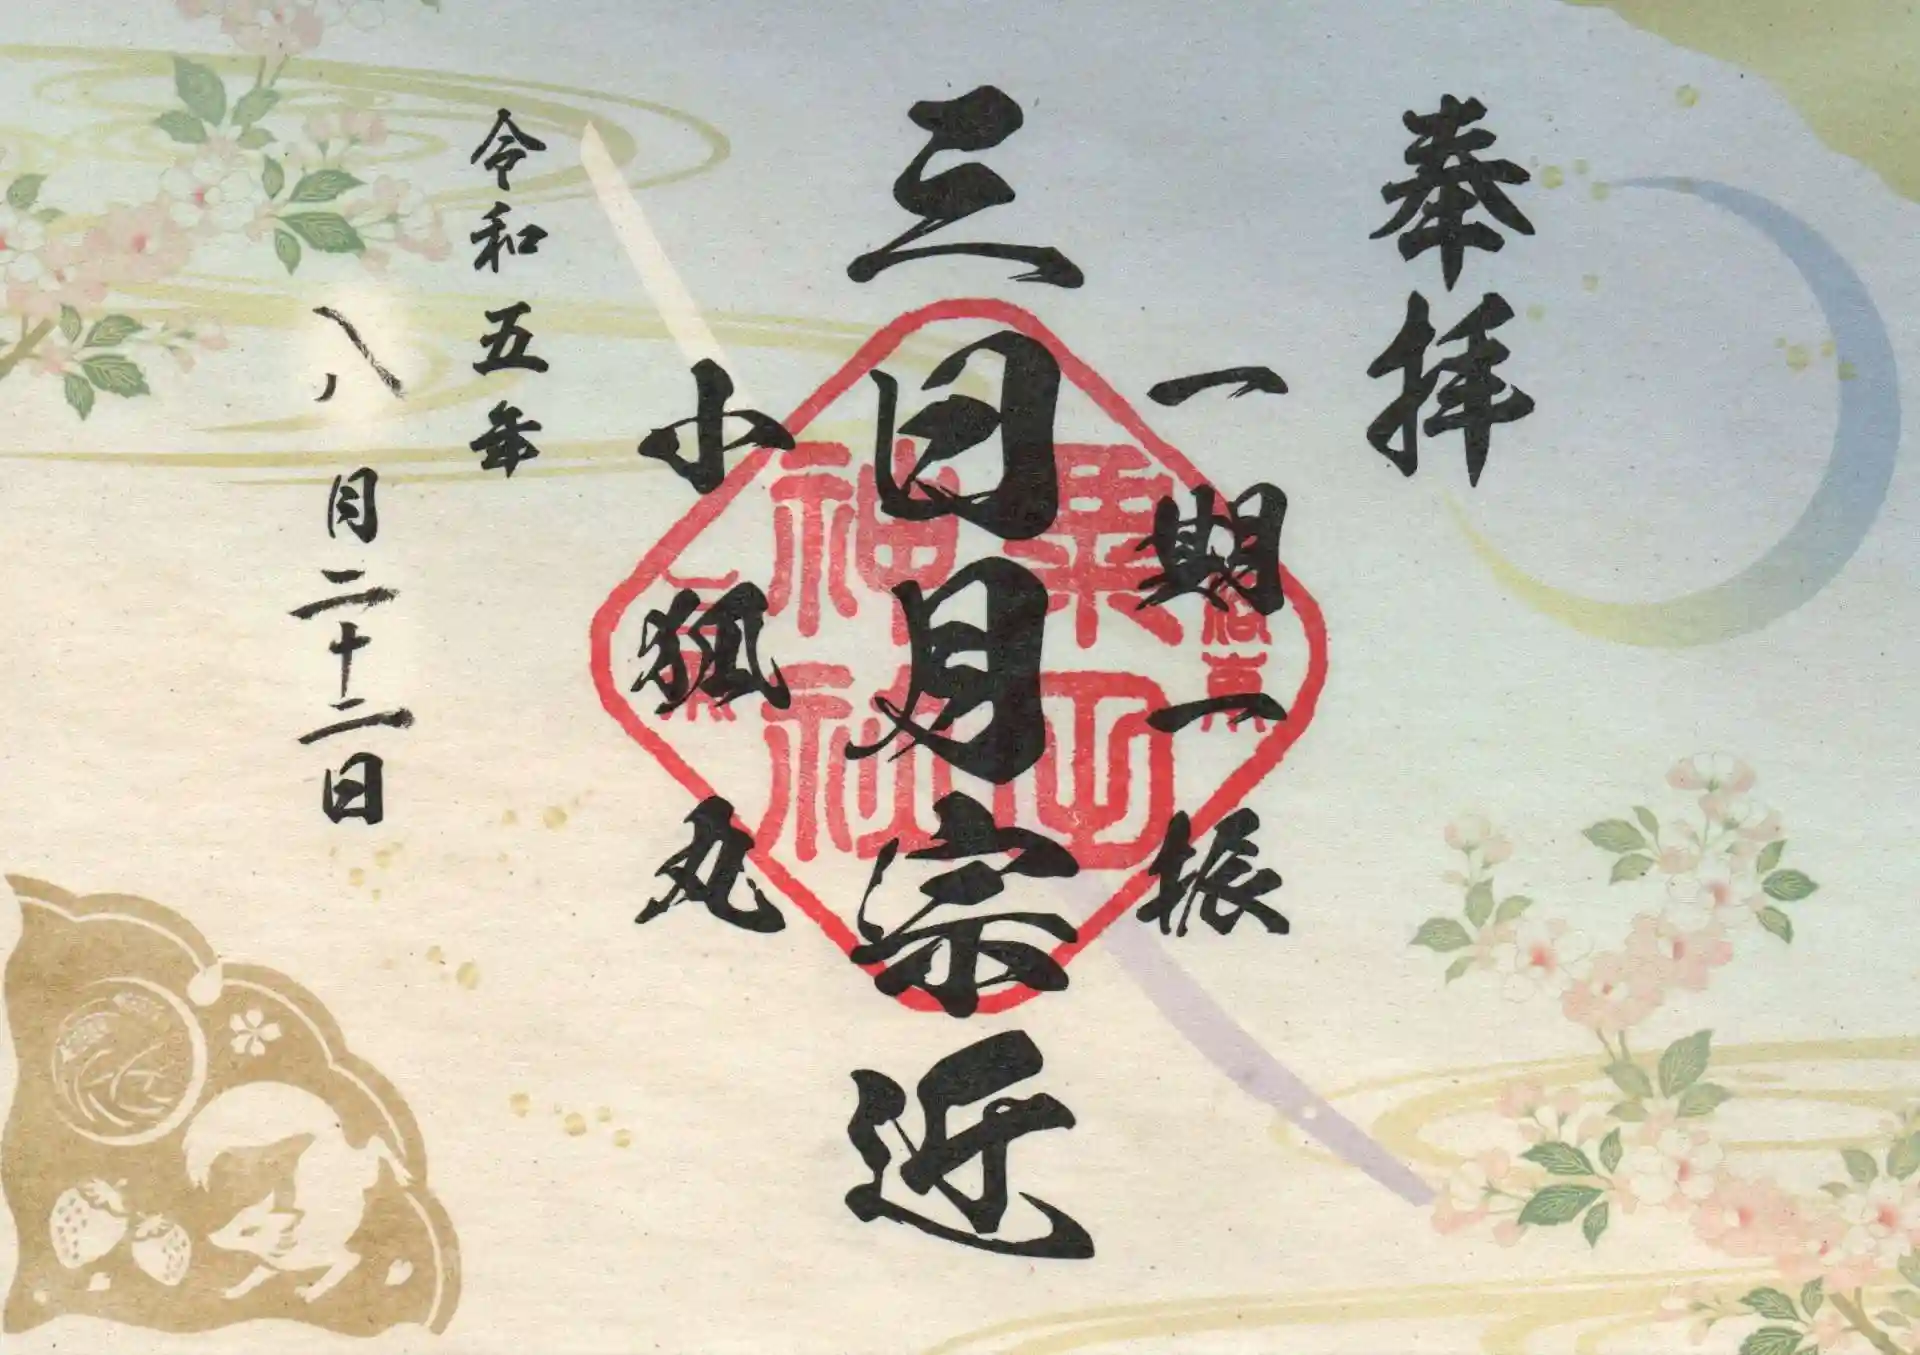 奉拝
一期一振
三日月宗近
粟田
神社
小狐丸
令和五年
八月二十二日